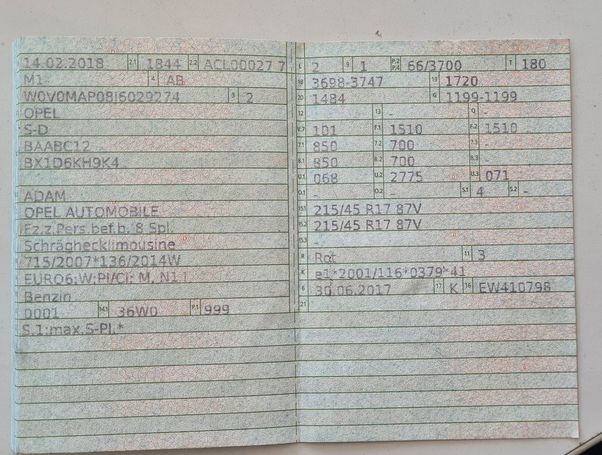 14.02.2018 2.1 1844 2.2 ACL00027 7
M1 4 AB
W0V0MAP08J6029274 3 2
OPEL
S-D
BAABC12
BX1D6KH9K4
ADAM
OPEL AUTOMOBILE
Fz.z.Pers.bef.b. 8 Spl.
Schräghecklimousine
715/2007*136/2014W
EURO6;W;PI/CI; M, N1 I
Benzin
0001 14.1 36W0 P.1 999
S.1:max.S-Pl.*
L 2 9 1 P.2 P.4 66/3700 T 180
18 3698-3747 19 1720
20 1484 G 1199-1199
12 - 13 - Q -
V.7 101 F.1 1510 F.2 1510
7.1 850 7.2 700 7.3 -
8.1 850 8.2 700 8.3 -
U.1 068 U.2 2775 U.3 071
O.1 - O.2 - S.1 4 S.2 -
15.1 215/45 R17 87V
15.2 215/45 R17 87V
15.3 -
R Rot 11 3
K e1*2001/116*0379*41
6 30.06.2017 17 K 16 EW410798
21